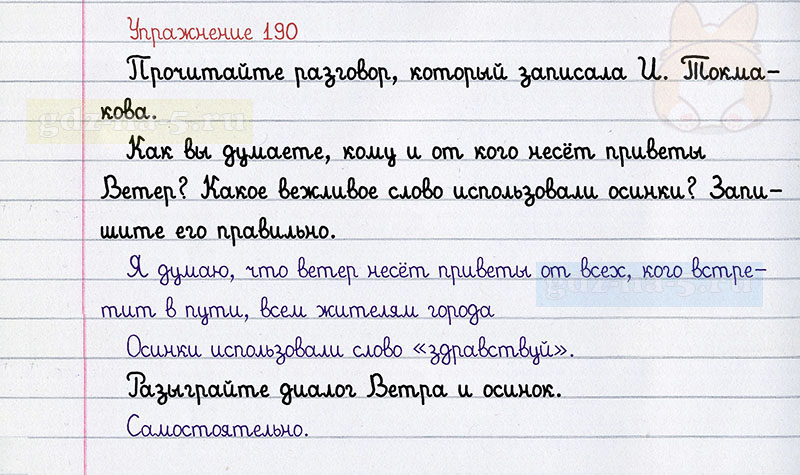 Упражнение 190
Прочитайте разговор, который записала И. Токма-
кова.
gdz-na-5.ru
Как вы думаете, кому и от кого несёт приветы
Ветер? Какое вежливое слово использовали осинки? Запи-
шите его правильно.
Я думаю, что ветер несёт приветы от всех, кого встре-
gdz-na-5.ru
тит в пути, всем жителям города
Осинки использовали слово «здравствуй».
Разыграйте диалог Ветра и осинок.
Самостоятельно.